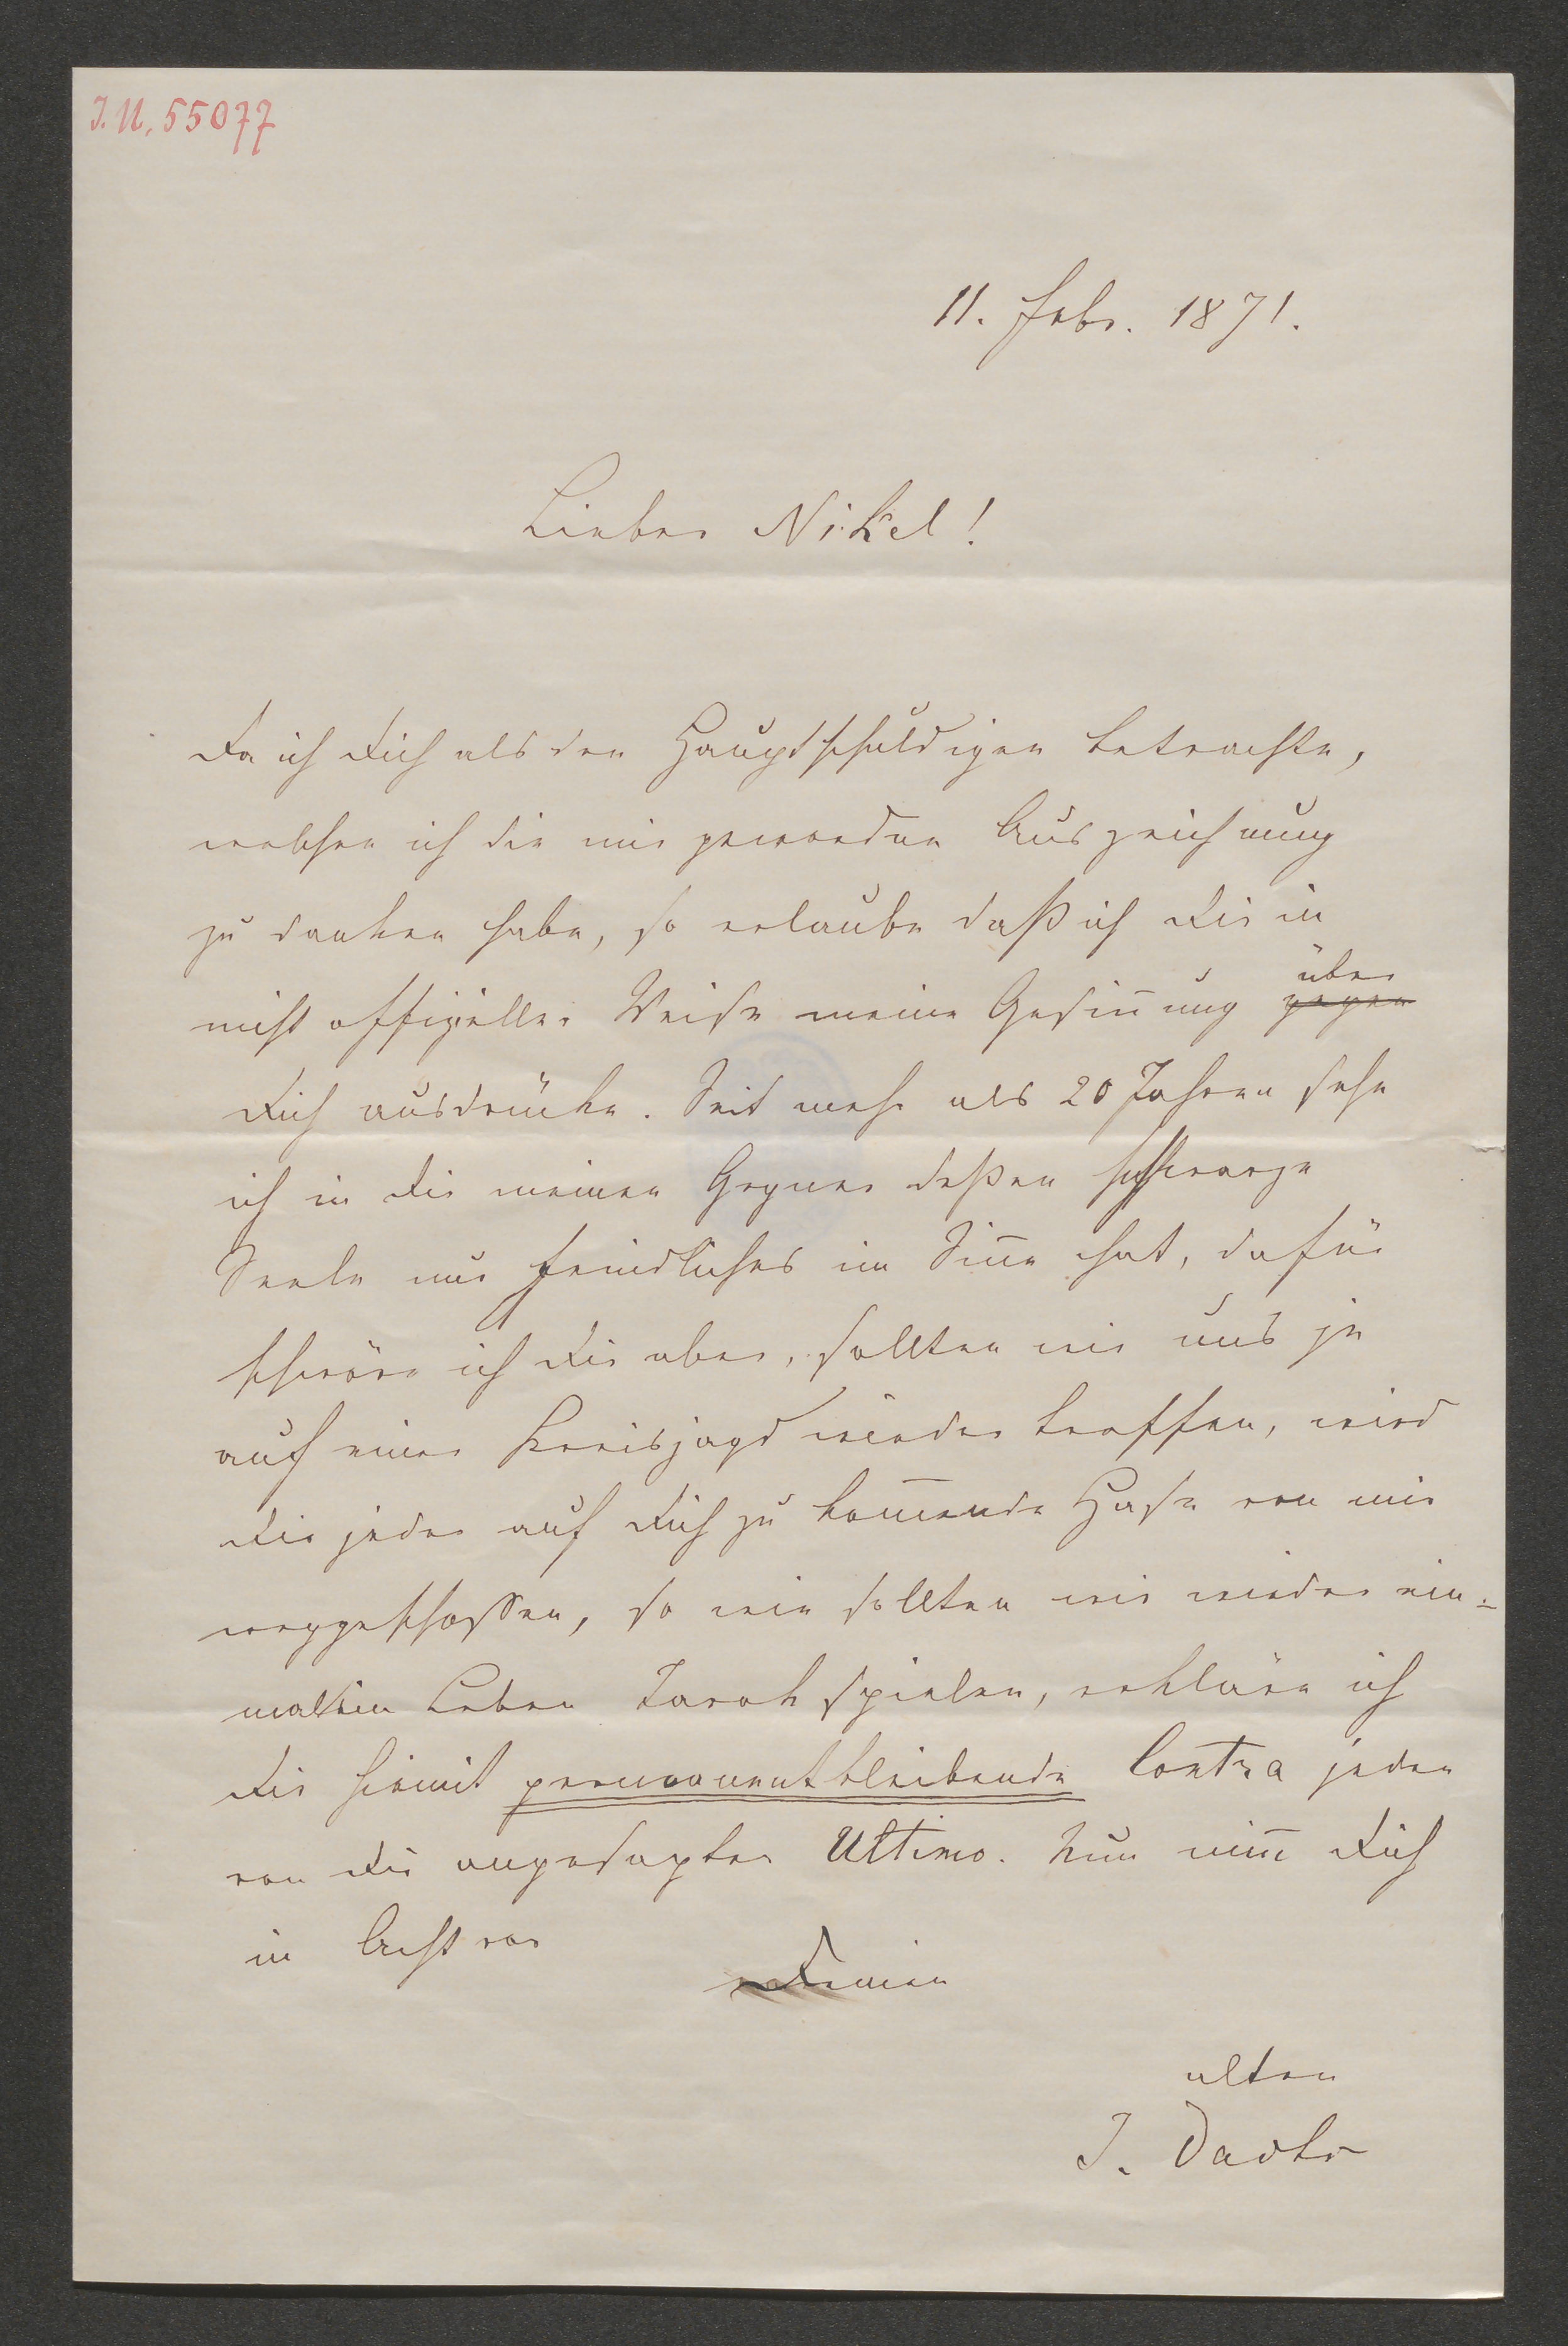 I.N. 55077
11. Febr. 1871.
Lieber Nikel!
Da ich Dich als den Hauptschuldigen betrachte,
welchen ich die mir gewordene Auszeichnung
zu danken habe, so erlaube daß ich Dir in
nicht offizieller Weise meine Gesin̄ung über
gegen
Dich ausdrücke. Seit mehr als 20 Jahren sehe
ich in Dir meinen Gegner deßen schwarze
Seele nur feindliches im Sin̄e hat, dafür
schwöre ich Dir aber, sollten wir uns je
auf einer Kreisjagd wieder treffen, wird
Dir jeder auf Dich zu kom̄ende Hase von mir
weggeschossen, so wie sollten wir wieder ein-
mal im Leben Tarok spielen, erkläre ich
Dir hiemit permanentbleibende Contra jeden
von Dir angesagter Ultimo. Nun nim̄ Dich
in Acht vor
Deinen
alten
J.